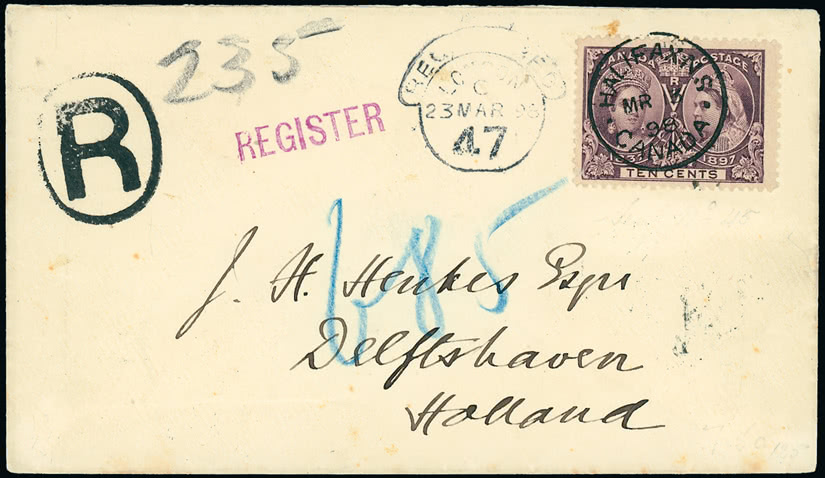 235
R
REGISTER
REGISTERED
LONDON
C
23 MAR 98
47
CANADA POSTAGE
1837 1897
TEN CENTS
HALIFAX N.S.
MR
98
CANADA
685
J. H. Henkes Esqr
Delftshaven
Holland